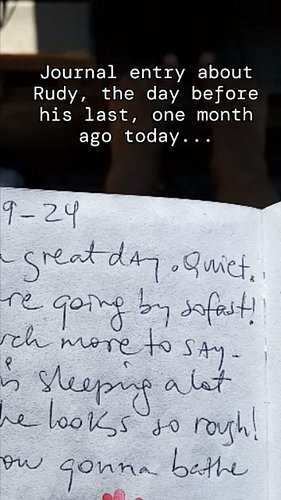 Journal entry about
Rudy, the day before
his last, one month
ago today...
9-24
great day. Quiet.
re going by so fast!
rch more to say-
is sleeping a lot
he looks so rough!
ow gonna bathe